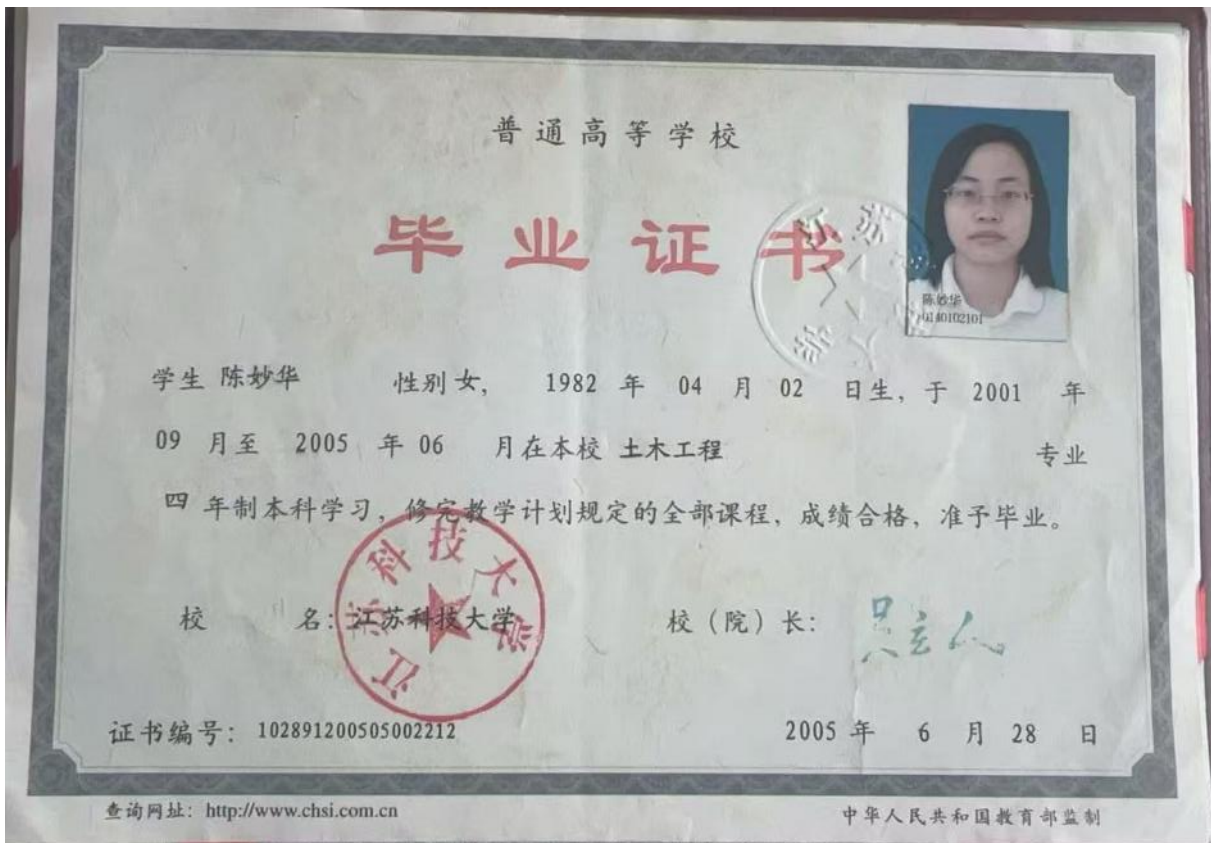 普通高等学校
毕业证书
陈妙华
0140102101
学生 陈妙华 性别 女, 1982 年 04 月 02 日生, 于 2001 年
09 月至 2005 年 06 月在本校 土木工程 专业
四 年制本科学习, 修完教学计划规定的全部课程, 成绩合格, 准予毕业。
校 名: 江苏科技大学 校 (院) 长:
江苏科技大学
证书编号: 102891200505002212 2005 年 6 月 28 日
查询网址: http://www.chsi.com.cn 中华人民共和国教育部监制